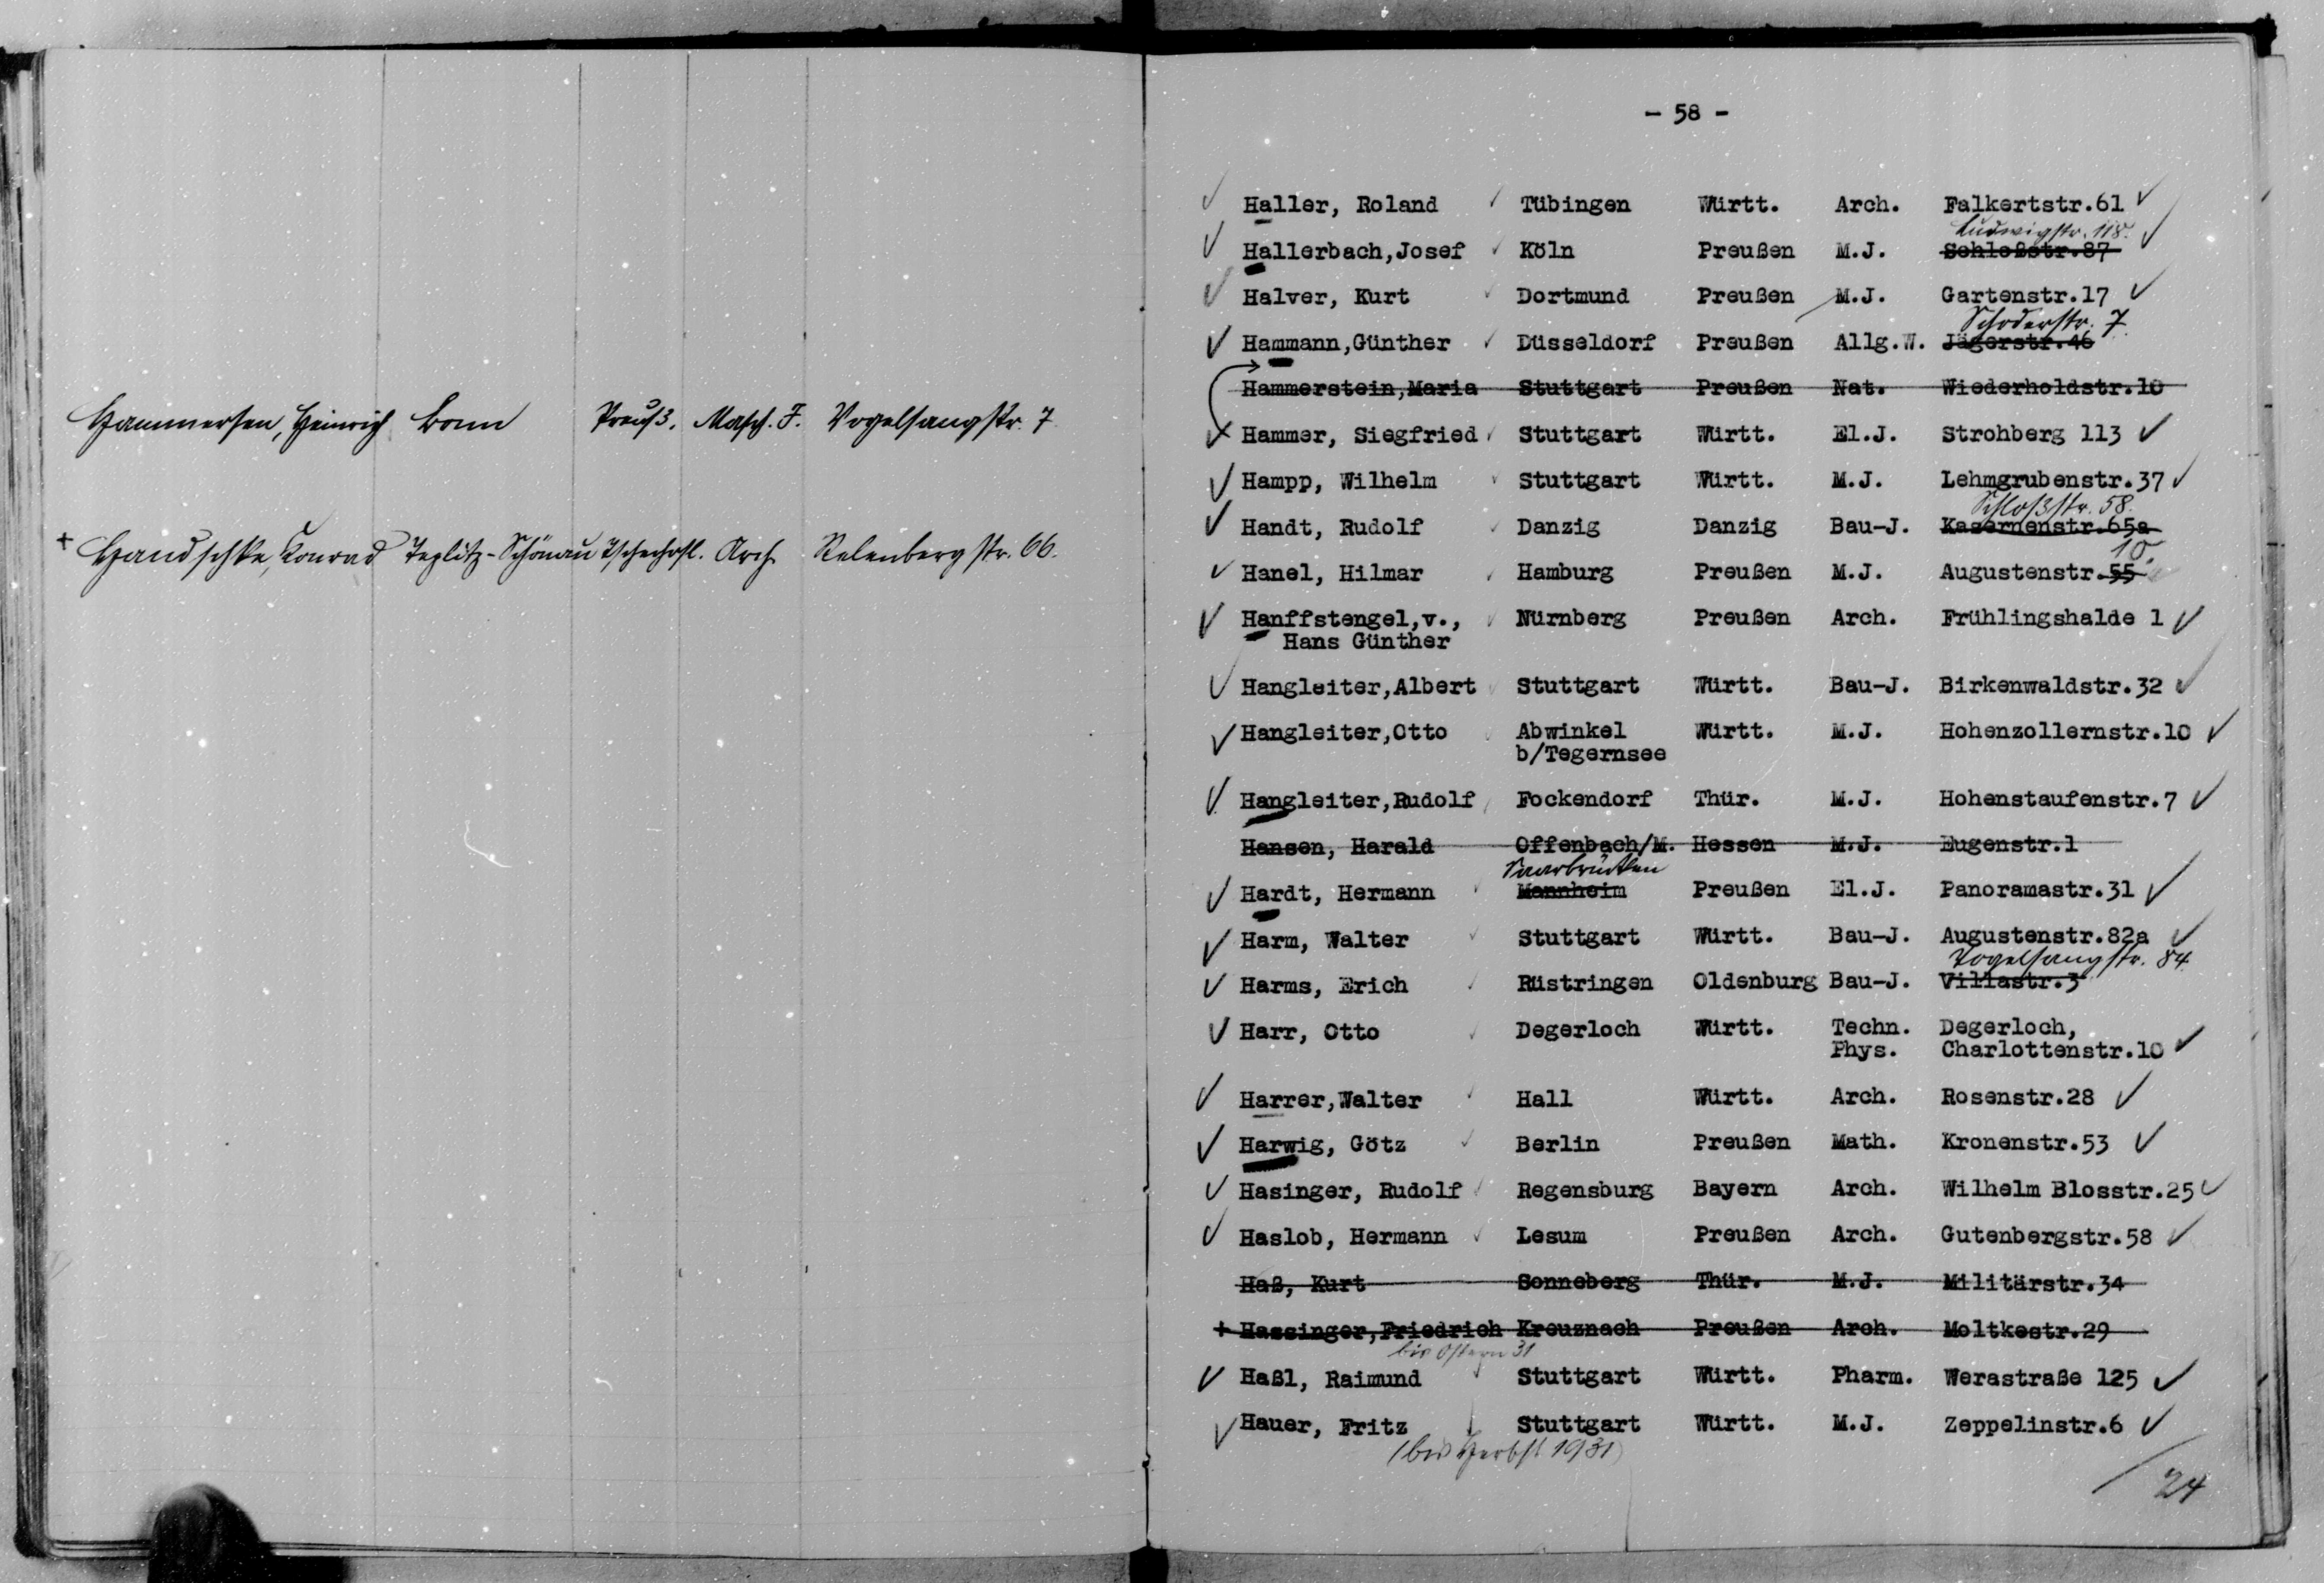 Hammersen, Heinrich Bonn Preuß. Masch. J. Vogelsangstr. 7
+ Handschke, Konrad Teplitz-Schönau Tschechosl. Arch. Relenbergstr. 66.
- 58 -
Haller, Roland Tübingen Württ. Arch. Falkertstr.61
Ludwigstr. 118.
Hallerbach,Josef Köln Preußen M.J. Schloßstr.87
Halver, Kurt Dortmund Preußen M.J. Gartenstr.17
Schoderstr. 7.
Hammann,Günther Düsseldorf Preußen Allg.W. Jägerstr.46
Hammerstein,Maria Stuttgart Preußen Nat. Wiederholdstr.10
Hammer, Siegfried Stuttgart Württ. El.J. Strohberg 113
Hampp, Wilhelm Stuttgart Württ. M.J. Lehmgrubenstr.37
Schloßstr. 58.
Handt, Rudolf Danzig Danzig Bau-J. Kasernenstr.65a
10.
Hanel, Hilmar Hamburg Preußen M.J. Augustenstr.55
Hanffstengel,v., Nürnberg Preußen Arch. Frühlingshalde 1
Hans Günther
Hangleiter,Albert Stuttgart Württ. Bau-J. Birkenwaldstr.32
Hangleiter,Otto Abwinkel Württ. M.J. Hohenzollernstr.10
b/Tegernsee
Hangleiter,Rudolf Fockendorf Thür. M.J. Hohenstaufenstr.7
Hansen, Harald Offenbach/M. Hessen M.J. Eugenstr.1
Saarbrücken
Hardt, Hermann Mannheim Preußen El.J. Panoramastr.31
Harm, Walter Stuttgart Württ. Bau-J. Augustenstr.82a
Vogelsangstr. 84
Harms, Erich Rüstringen Oldenburg Bau-J. Villastr.3
Harr, Otto Degerloch Württ. Techn. Degerloch,
Phys. Charlottenstr.10
Harrer,Walter Hall Württ. Arch. Rosenstr.28
Harwig, Götz Berlin Preußen Math. Kronenstr.53
Hasinger, Rudolf Regensburg Bayern Arch. Wilhelm Blosstr.25
Haslob, Hermann Lesum Preußen Arch. Gutenbergstr.58
Haß, Kurt Sonneberg Thür. M.J. Militärstr.34
+ Hassinger,Friedrich Kreuznach Preußen Arch. Moltkestr.29
bis Ostern 31
Haßl, Raimund Stuttgart Württ. Pharm. Werastraße 125
Hauer, Fritz Stuttgart Württ. M.J. Zeppelinstr.6
(bis Herbst 1931)
24